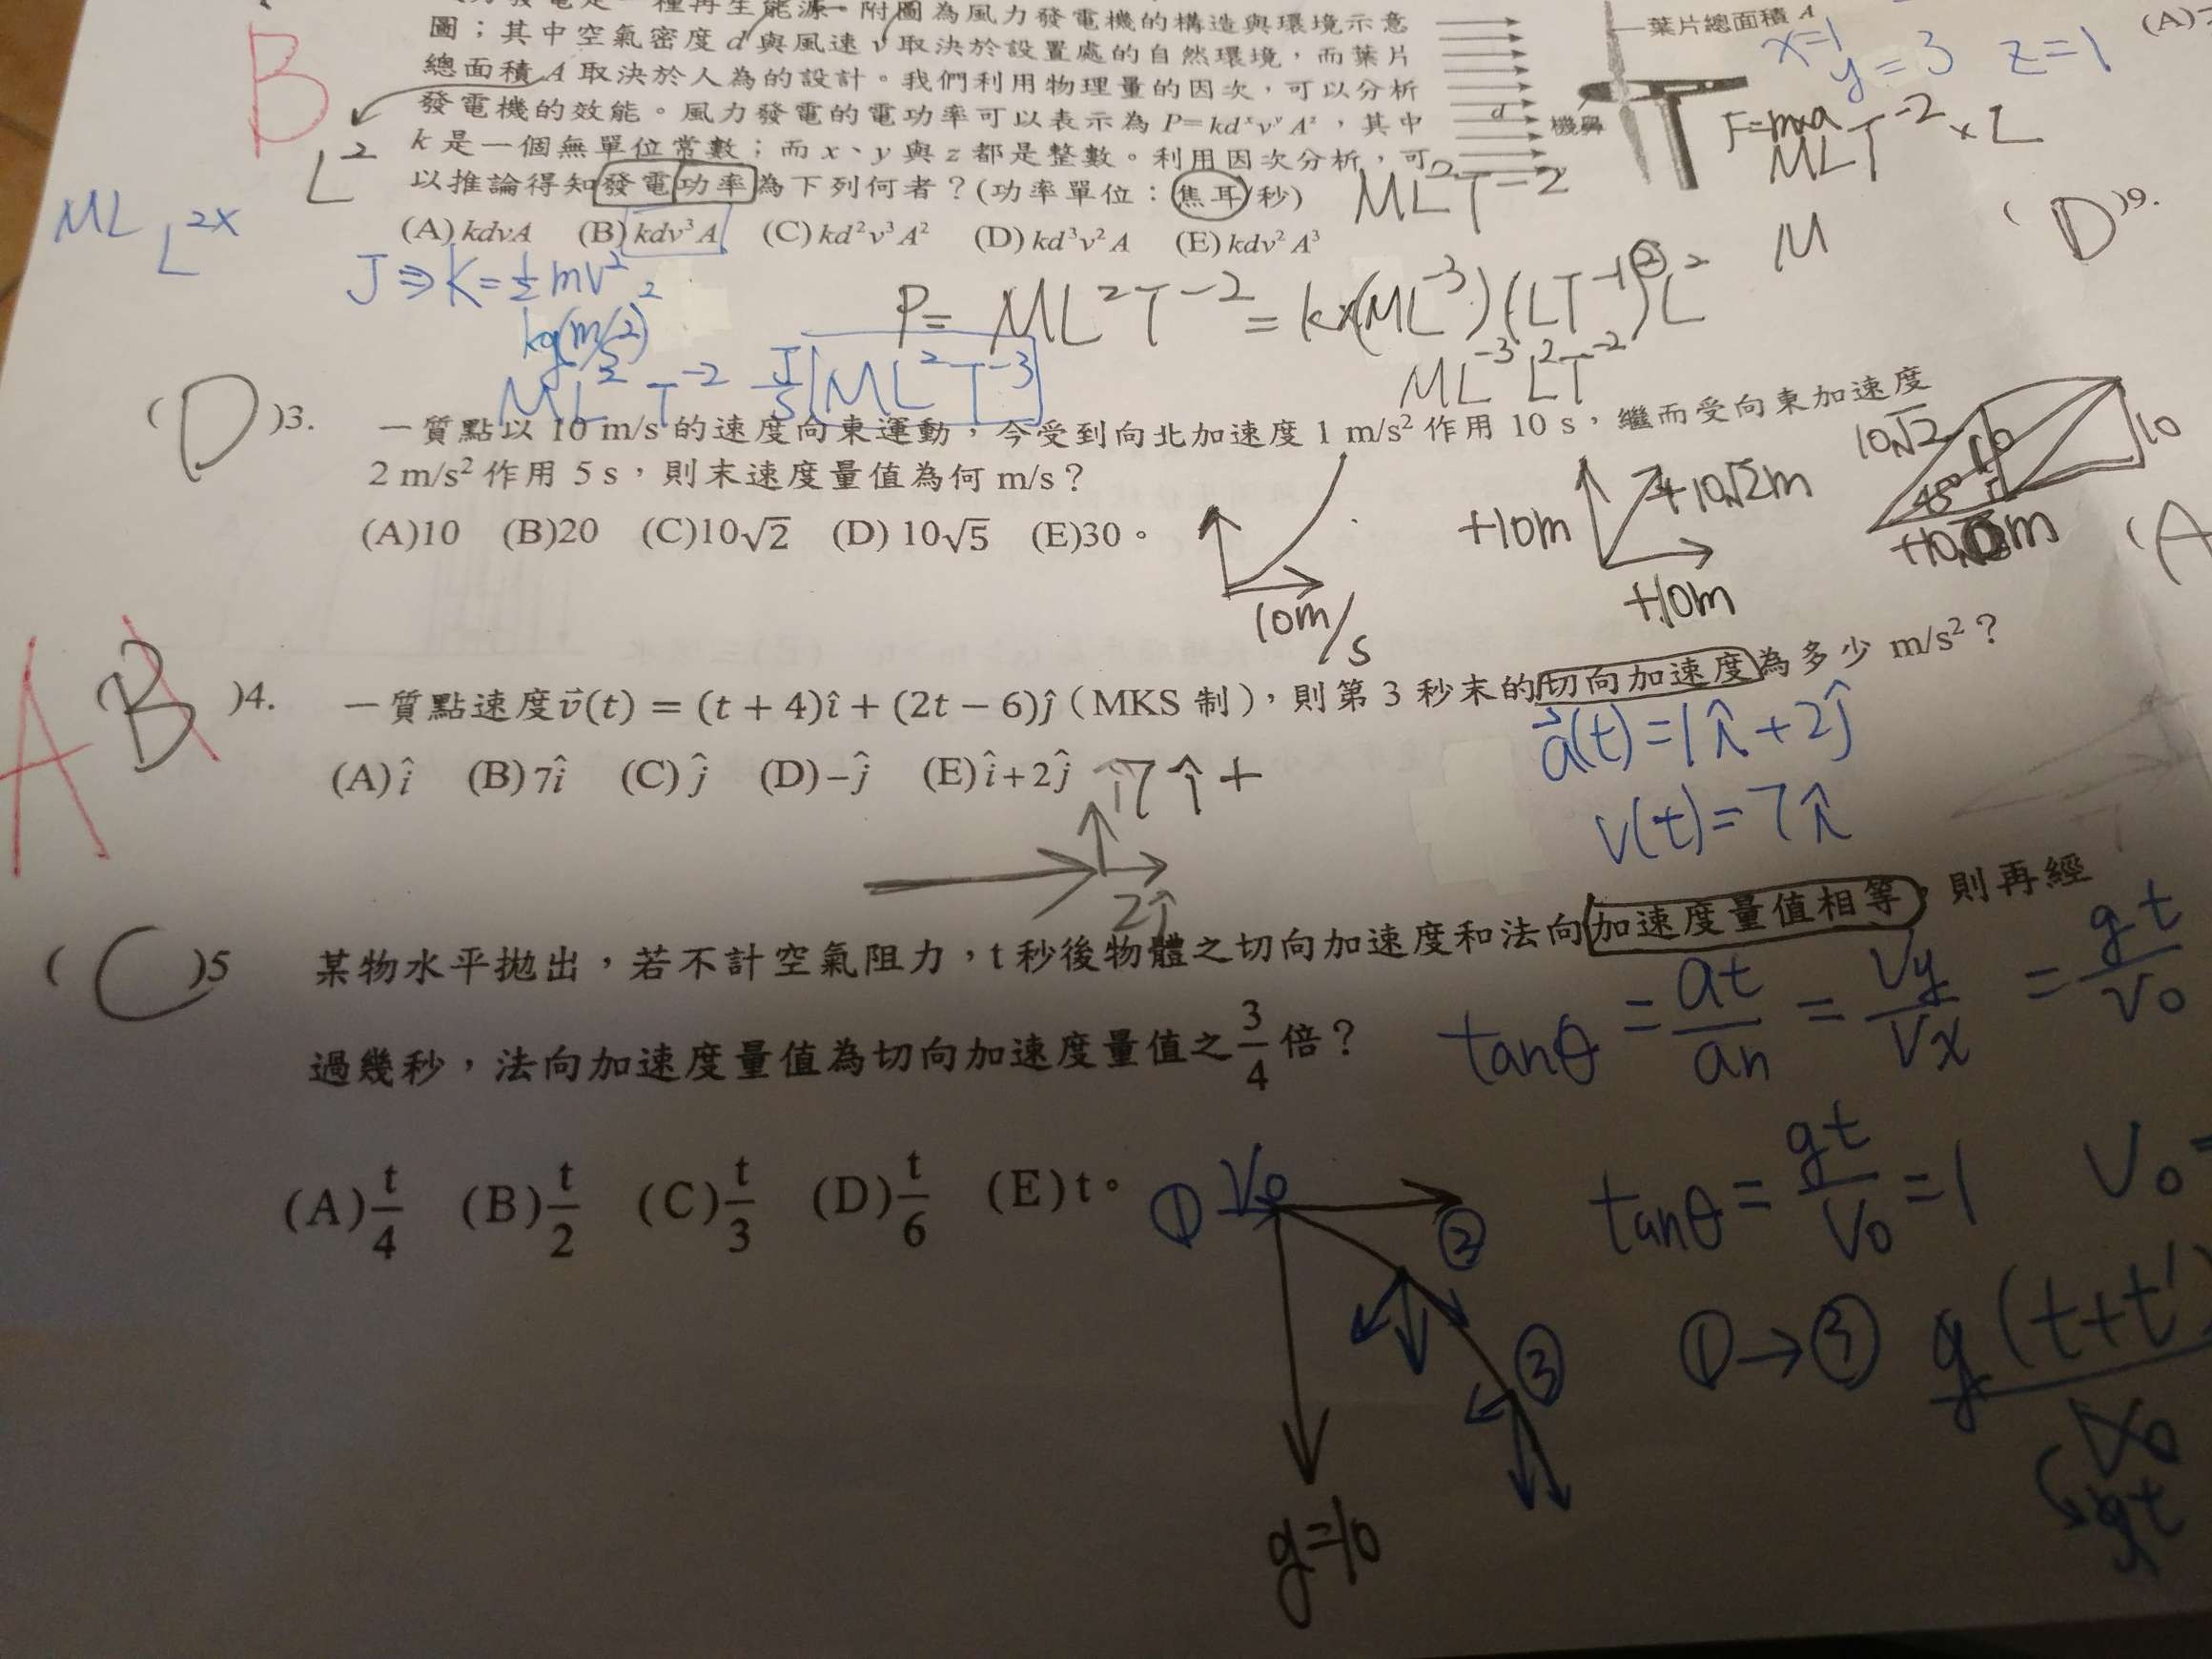 力發電是一種再生能源。附圖為風力發電機的構造與環境示意
圖；其中空氣密度 d 與風速 v 取決於設置處的自然環境，而葉片
總面積 A 取決於人為的設計。我們利用物理量的因次，可以分析
發電機的效能。風力發電的電功率可以表示為 P=kdˣvʸAᶻ，其中
k 是一個無單位常數；而 x、y 與 z 都是整數。利用因次分析，可
以推論得知發電功率為下列何者？(功率單位：焦耳/秒)
(A) kdvA (B) kdv³A (C) kd²v³A² (D) kd³v²A (E) kdv²A³
葉片總面積 A
機鼻
d
x=1
y=3 z=1
(A)
F=ma
MLT⁻² × L
ML²T⁻²
M
(D)9.
B
L²
ML L²ˣ
J⇒K=½mv²
kg(m/s)²
ML²T⁻² J/s ML²T⁻³
P= ML²T⁻² = k×(ML⁻³)(LT⁻¹)²L²
ML⁻³L²T⁻²
(D)3. 一質點以 10 m/s 的速度向東運動，今受到向北加速度 1 m/s² 作用 10 s，繼而受向東加速度
2 m/s² 作用 5 s，則末速度量值為何 m/s？
(A)10 (B)20 (C)10√2 (D) 10√5 (E)30。
10m/s
+10m
+10√2m
+10m
10√2
10
45°
10
(A
A B)4. 一質點速度v⃗(t) = (t + 4)î + (2t − 6)ĵ（MKS 制），則第 3 秒末的切向加速度為多少 m/s²？
(A) î (B) 7î (C) ĵ (D) −ĵ (E) î+2ĵ
7î +
2ĵ
a⃗(t)=1î+2ĵ
v(t)=7î
(C)5 某物水平拋出，若不計空氣阻力，t 秒後物體之切向加速度和法向加速度量值相等，則再經
過幾秒，法向加速度量值為切向加速度量值之 3/4 倍？
(A) t/4 (B) t/2 (C) t/3 (D) t/6 (E) t。
tanθ = at/an = Vy/Vx = gt/V₀
tanθ = gt/V₀ = 1 V₀=
①→③ g(t+t')/V₀
gt
① V₀
②
③
g=10